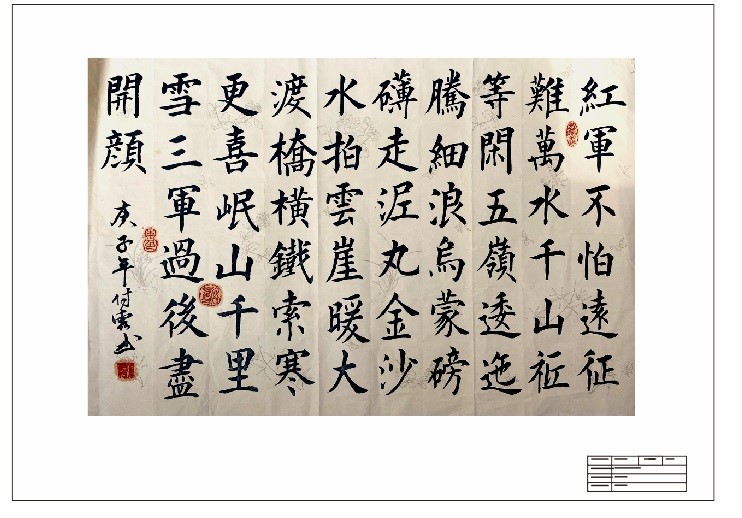 紅軍不怕遠征
難萬水千山衹
等閑五嶺逶迤
騰細浪烏蒙磅
礴走泥丸金沙
水拍雲崖暖大
渡橋橫鐵索寒
更喜岷山千里
雪三軍過後盡
開顔
庚子年付雲书